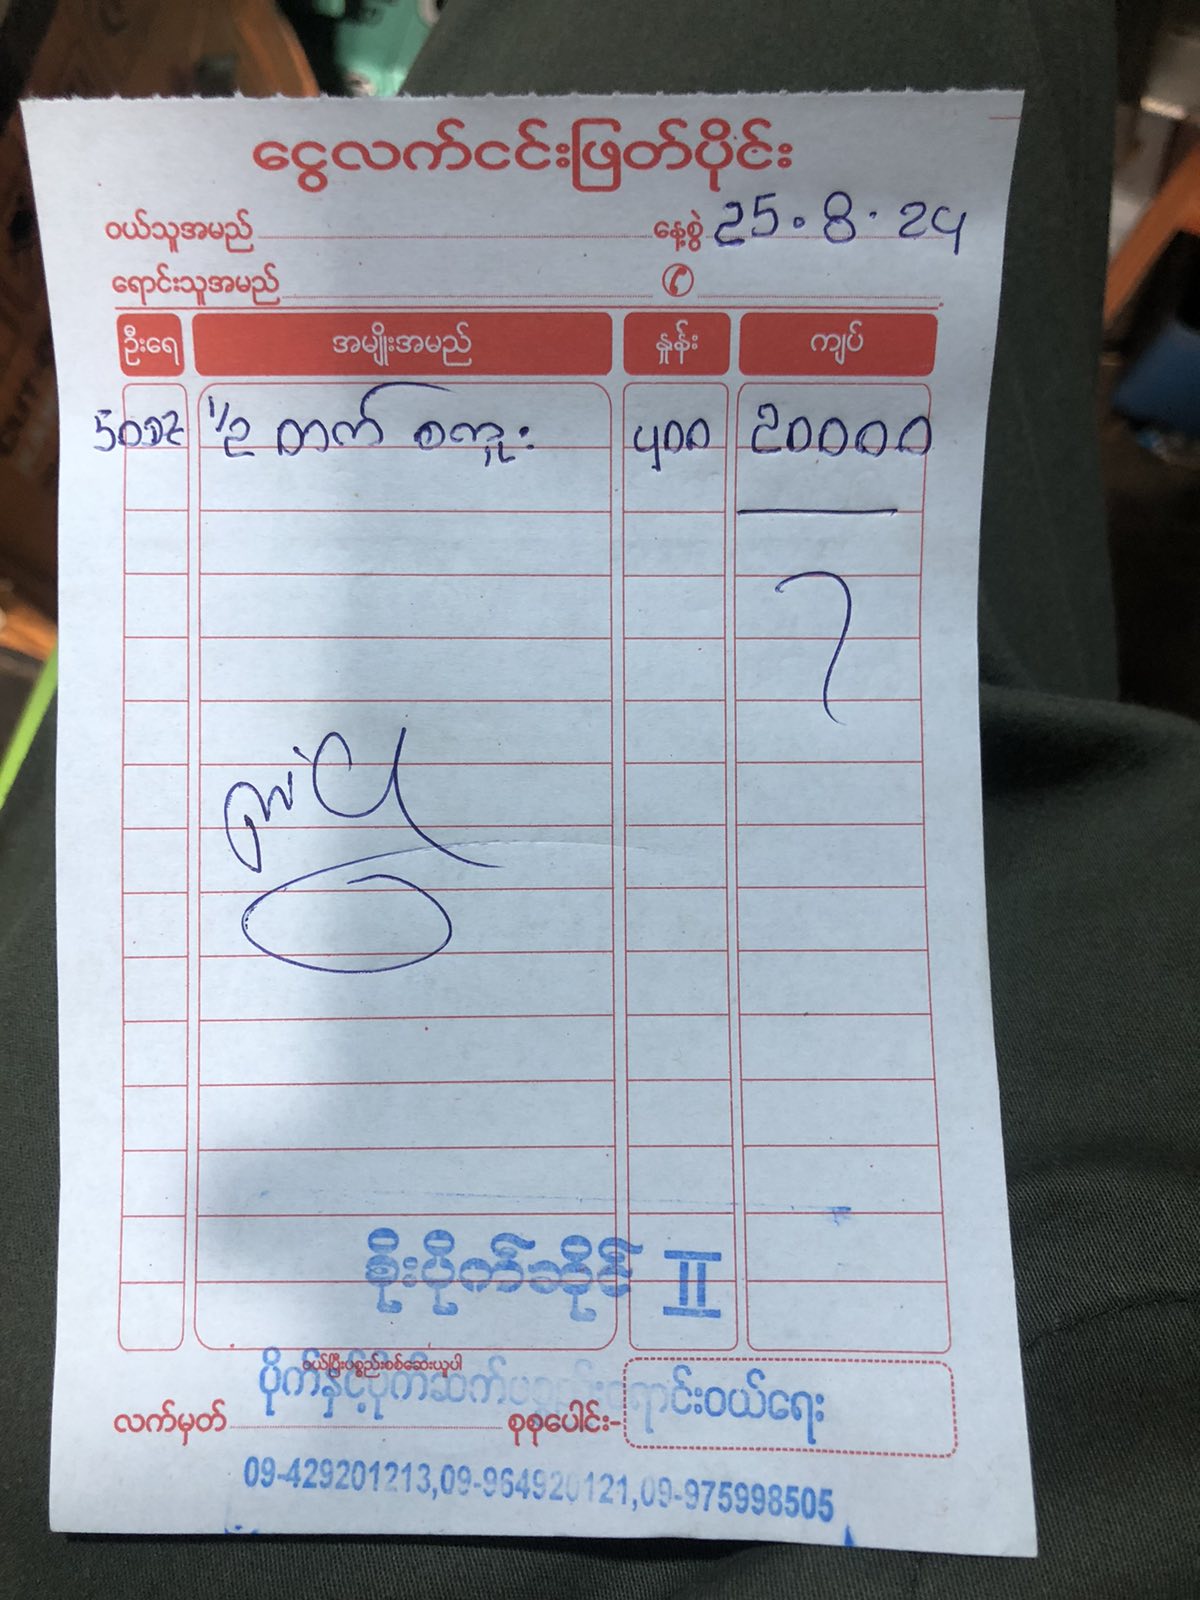 ငွေလက်ငင်းဖြတ်ပိုင်း
ဝယ်သူအမည် နေ့စွဲ 25.8.24
ရောင်းသူအမည်
ဦးရေ အမျိုးအမည် နှုန်း ကျပ်
1/2 တက် စက္ကူး 400 20000
စိုးပိုက်ဆိုင် II
ဝယ်ပြီးပစ္စည်းစစ်ဆေးယူပါ
ပိုက်နှင့်ပိုက်ဆက်ပစ္စည်းရောင်းဝယ်ရေး
လက်မှတ် စုစုပေါင်း-
09-429201213,09-964920121,09-975998505